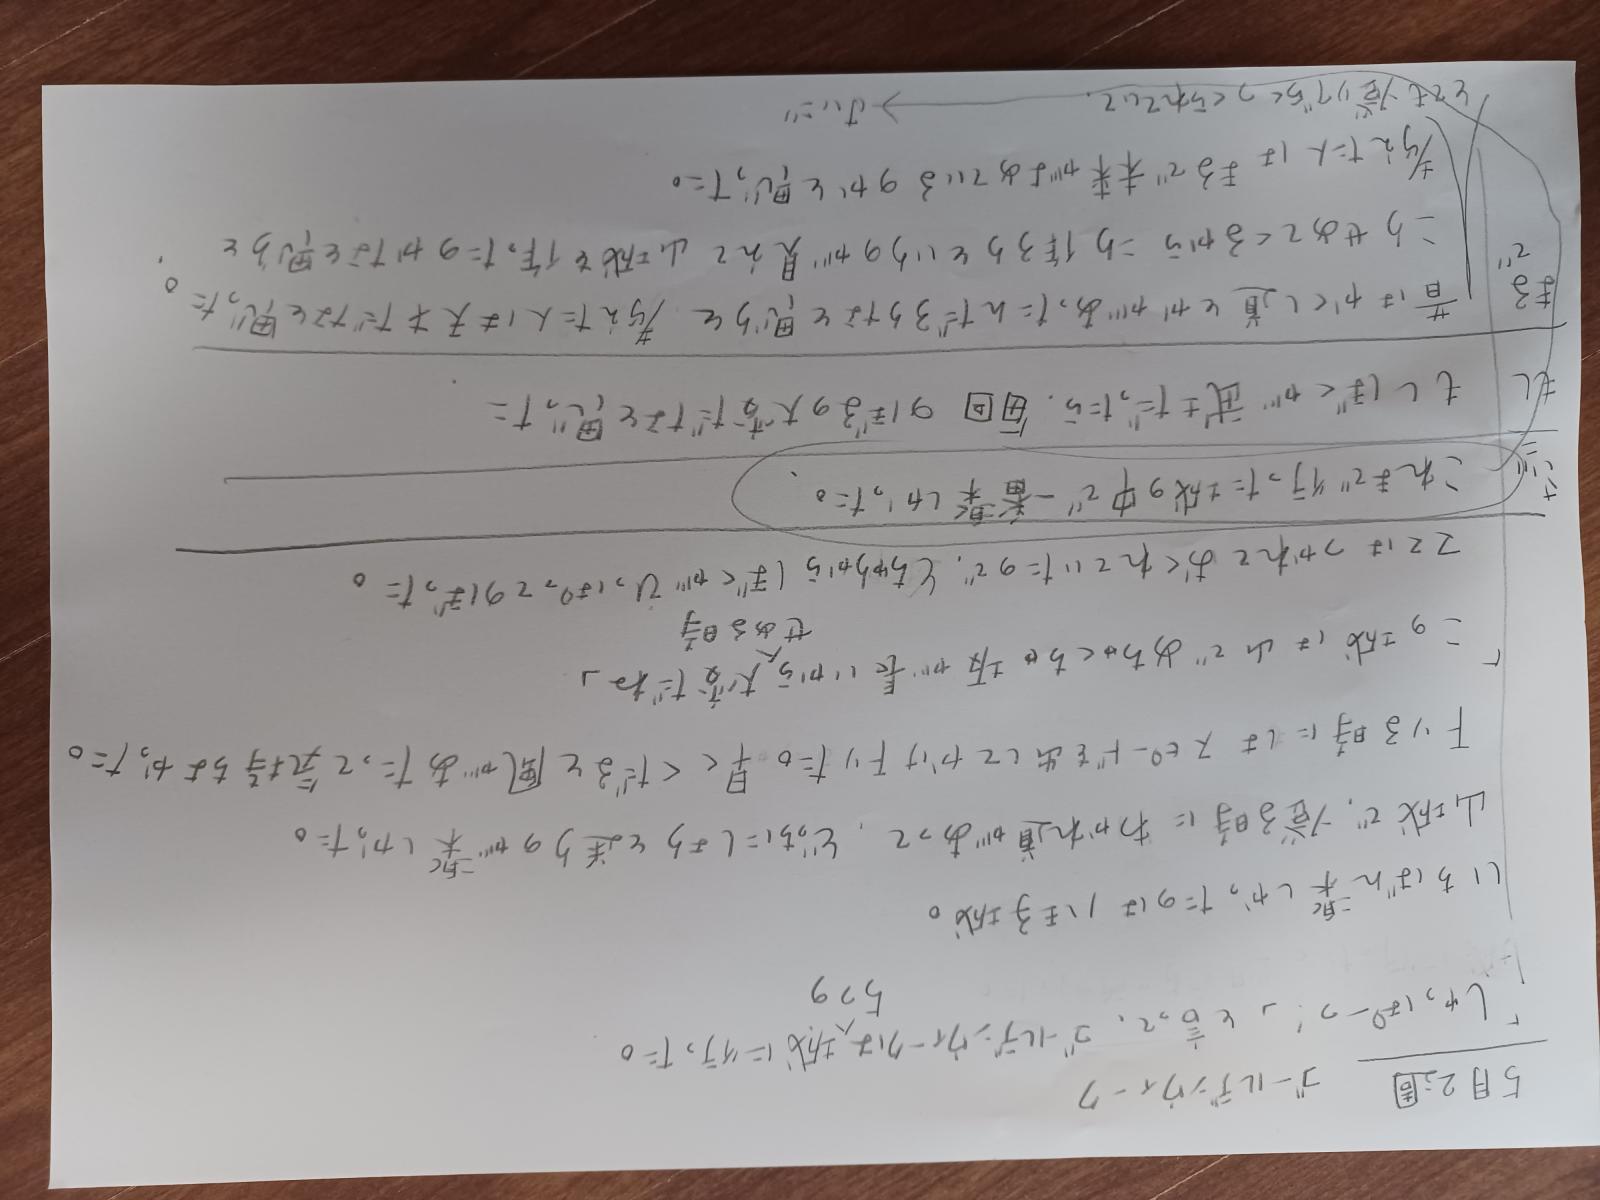 5月2週 ゴールデンウィーク
「しゅっぱーつ!」と言って、ゴールデンウィークは城に行った。
5つの
いちばん楽しかったのは八王子城。
山城で、登る時にわかれ道があって、どっちにしようと迷うのが楽しかった。
下りる時にはスピードを出してかけ下りた。早くくだると風があたって気持ちよかった。
「この城は山であちゅくちゅ坂が長いから大変だね」
せめる時
ママはつかれておくれていたので、とちゅうからぼくがひっぱってのぼった。
これまで行った城の中で一番楽しかった。
さいご
もし もしぼくが武士だったら、毎回のぼるの大変だなと思った
まるで
昔はかくし道とかがあったんだろうなと思うと、考えた人は天才だなと思った。
こうせめてくるからこう作ろうというのが見えて山城を作ったのかなと思うと、
考えた人はまるで未来がよめているのかと思った。
とても登りづらくつくられていて、